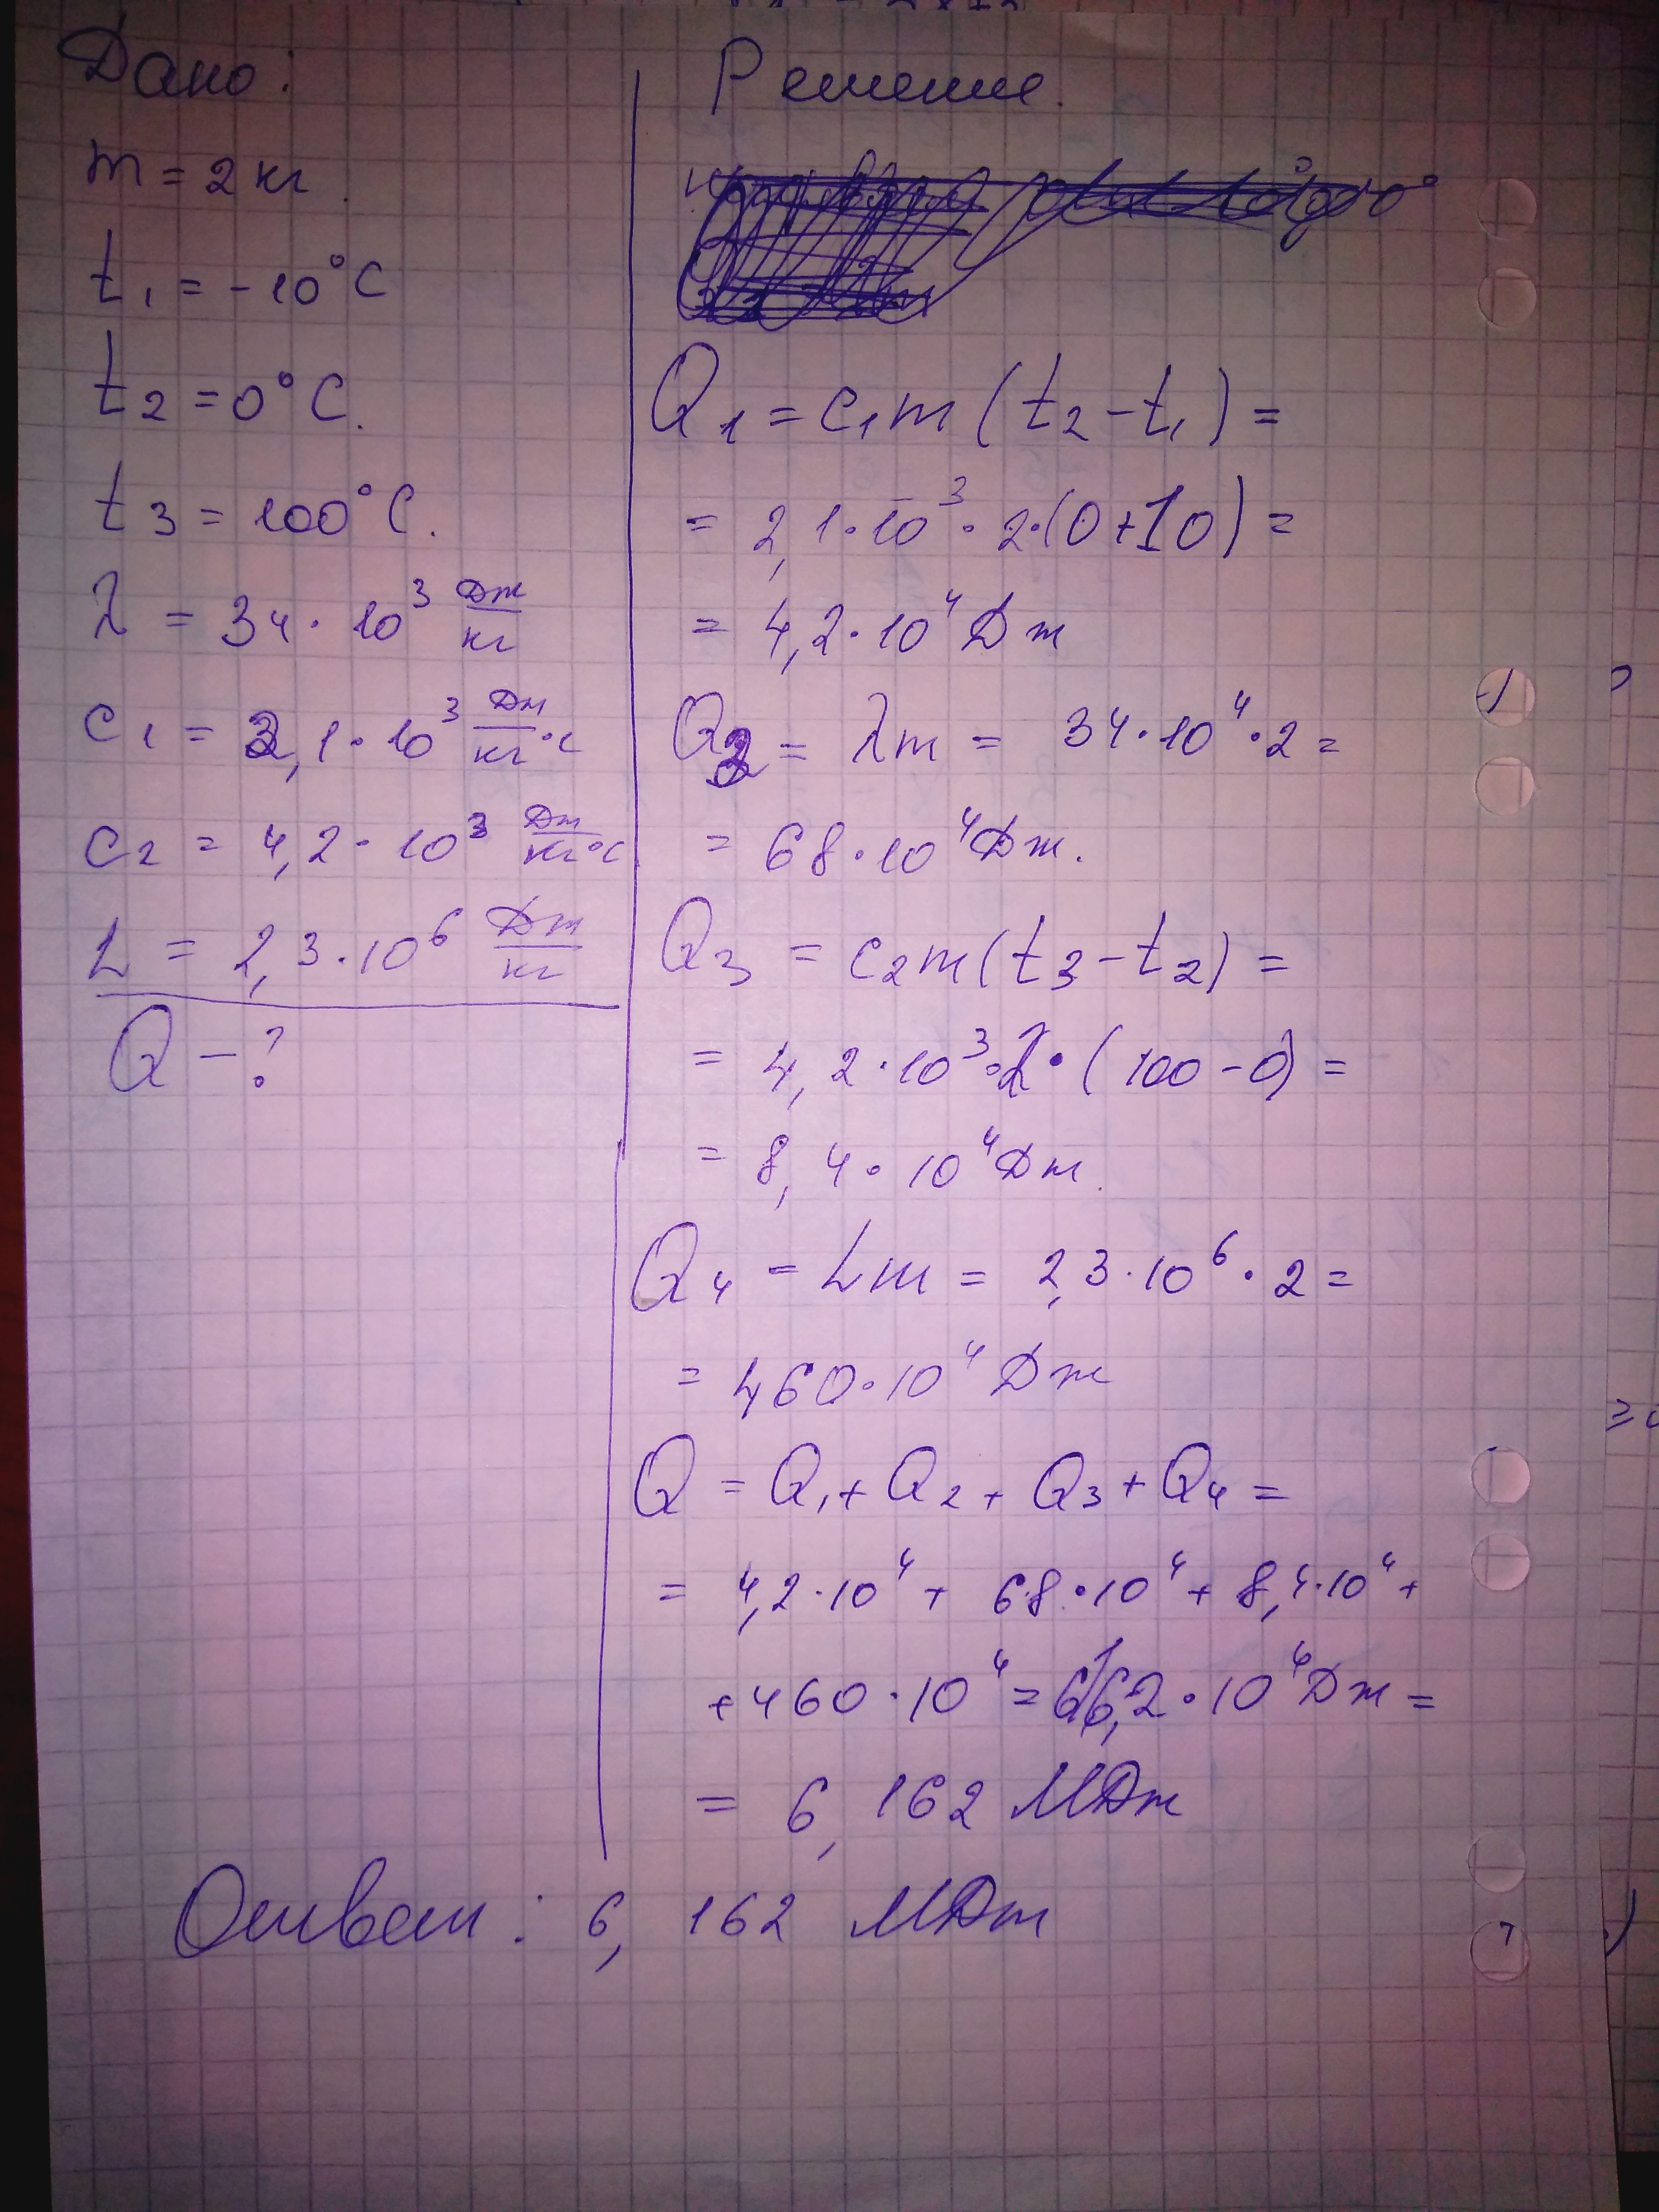 Дано:
m = 2 кг.
t₁ = -10°C
t₂ = 0°C.
t₃ = 100°C.
λ = 34·10³ Дж/кг
c₁ = 2,1·10³ Дж/кг·°C
c₂ = 4,2·10³ Дж/кг°C
L = 2,3·10⁶ Дж/кг
Q - ?
Решение.
Q₁ = c₁m(t₂-t₁) =
= 2,1·10³·2·(0+10) =
= 4,2·10⁴ Дж
Q₂ = λm = 34·10⁴·2 =
= 68·10⁴ Дж.
Q₃ = c₂m(t₃-t₂) =
= 4,2·10³·2·(100-0) =
= 8,4·10⁴ Дж.
Q₄ = Lm = 2,3·10⁶·2 =
= 460·10⁴ Дж
Q = Q₁+Q₂+Q₃+Q₄ =
= 4,2·10⁴ + 68·10⁴ + 8,4·10⁴ +
+ 460·10⁴ = 616,2·10⁴ Дж =
= 6,162 МДж
Ответ: 6,162 МДж